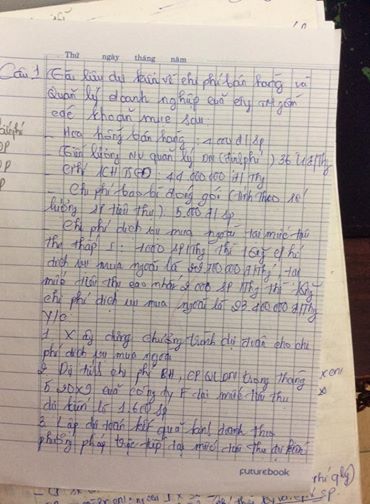 Thứ ngày tháng năm
Câu 1 Tài liệu dự kiến về chi phí bán hàng và
Quản lý doanh nghiệp của cty gồm
các khoản mục sau
- Hoa hồng bán hàng : 4.000 đ/SP
- Tiền lương NV quản lý DN (định phí) 36 đ/Thg
- CPKHTSCĐ : 44.000.000 đ/Thg
- Chi phí bao bì đóng gói (tính theo số
lượng SP tiêu thụ). 5.000 đ/Sp
- Chi phí dịch vụ mua ngoài tại mức tiêu
thụ thấp I: 1000 SP/Thg thì tổng chi phí
dịch vụ mua ngoài là đ/Thg, tại
mức tiêu thụ cao nhất 2.000 SP/Thg thì tổng
chi phí dịch vụ mua ngoài là 23.400.000đ/Thg
Y/c:
1. Xây dựng phương trình dự đoán cho chi
phí dịch vụ mua ngoài
2 Dự tính chi phí BH, CPQLDN trong tháng
5.20X2 của công ty F tại mức tiêu thụ
dự kiến là 1.600 SP
3. Lập dự toán kết quả kinh doanh theo
phương pháp trực tiếp tại mức tiêu thụ dự kiến
futurebook